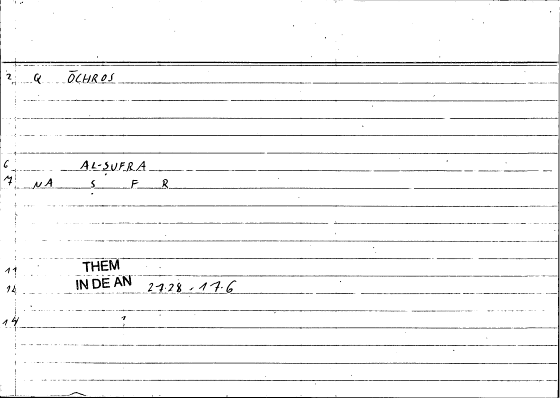 2 Q ŌCHROS
6 AL-ṢUFRA
7 NA Ṣ F R
11 THEM
12 IN DE AN 27.28 , 17.6
14 ?